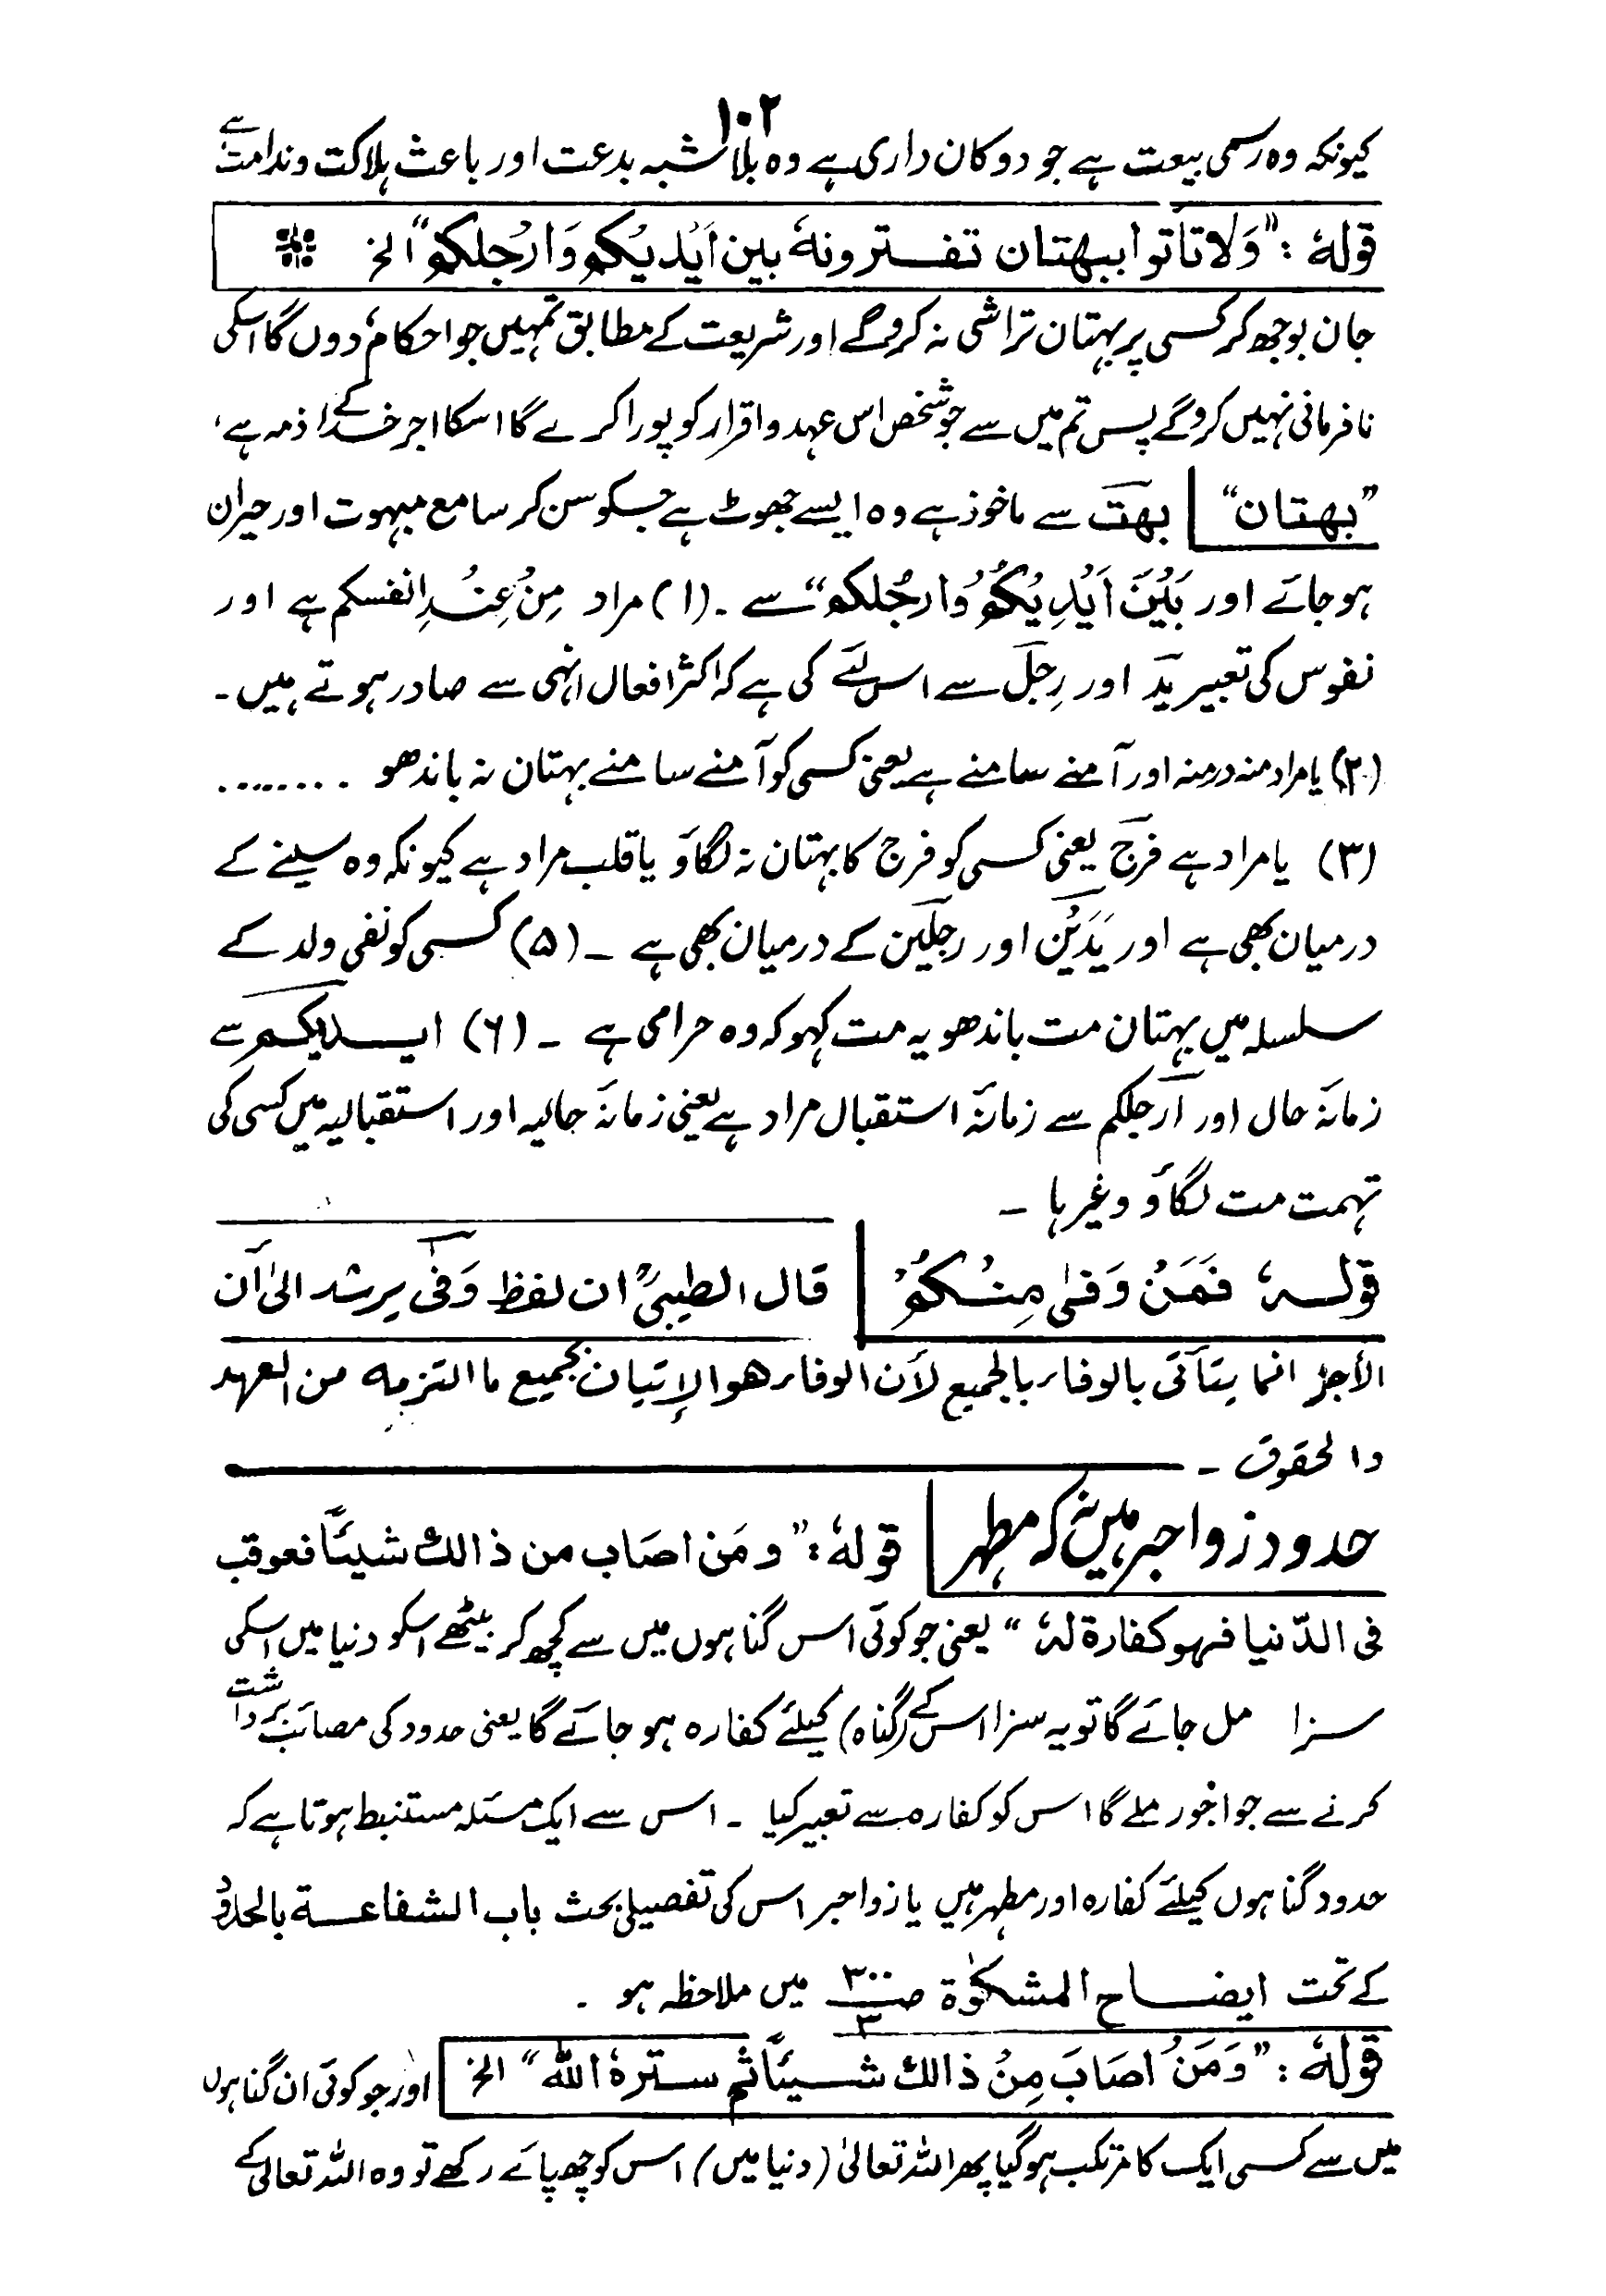 ۱۰۲
کیونکہ وہ رسمی بیعت ہے جو دوکان داری ہے وہ بلا شبہ بدعت اور باعث ہلاکت وندامت ہے
قولہٗ : ”وَلا تأتوا ببهتان تفترونهٗ بین اَیْدیْکم وَارْجلکم“ الخ
جان بوجھ کر کسی پر بہتان تراشی نہ کروگے اور شریعت کے مطابق تمہیں جو احکام دوں گا اسکی
نافرمانی نہیں کروگے پس تم میں سے جو شخص اس عہد و اقرار کو پورا کرے گا اسکا اجر خدا کے ذمہ ہے ،
”بهتان“ بهت سے ماخوذ ہے وہ ایسے جھوٹ ہے جسکو سن کر سامع مبہوت اور حیران
ہو جائے اور بَیْنَ اَیْدِیْکُمْ وَارجُلکم“ سے ۔ (۱) مراد مِنْ عِنْدِ انفسکم ہے اور
نفوس کی تعبیر ید اور رِجل سے اس لئے کی ہے کہ اکثر افعال انہی سے صادر ہوتے ہیں ۔
(۲) یا مراد منہ درمنہ اور آمنے سامنے ہے یعنی کسی کو آمنے سامنے بہتان نہ باندھو ........
(۳) یا مراد ہے فرج یعنی کسی کو فرج کا بہتان نہ لگاؤ یا قلب مراد ہے کیونکہ وہ سینے کے
درمیان بھی ہے اور یَدَیْن اور رجلین کے درمیان بھی ہے ۔ (۵) کسی کو نفی ولد کے
سلسلہ میں بہتان مت باندھو یہ مت کہو کہ وہ حرامی ہے ۔ (۶) ایدیکم سے
زمانۂ حال اور اَرجلکم سے زمانۂ استقبال مراد ہے یعنی زمانۂ حالیہ اور استقبالیہ میں کسی کی
تہمت مت لگاؤ وغیرہا ۔
قولہٗ فَمَنْ وَفیٰ مِنْکُمْ قال الطیبیؒ ان لفظ وَفی یرشد الیٰ أن
الأجر انما یتأتی بالوفاء بالجمیع لأن الوفاء هو الإتیان بجمیع ما التزمه من العهد
والحقوق ۔
حدود زواجر ہیں نہ کہ مطہر قولہٗ : ”ومَن اصَاب من ذالك شیئًا فعوقب
فی الدّنیا فهو کفارۃ لہٗ“ یعنی جو کوئی اس گناہوں میں سے کچھ کر بیٹھے اسکو دنیا میں اسکی
سزا مل جائے گا تو یہ سزا اس کے (گناہ) کیلئے کفارہ ہو جائے گا یعنی حدود کی مصائب برداشت
کرنے سے جو اجور ملے گا اس کو کفارہ سے تعبیر کیا ۔ اس سے ایک مسئلہ مستنبط ہوتا ہے کہ
حدود گناہوں کیلئے کفارہ اور مطہر ہیں یا زواجر اس کی تفصیلی بحث باب الشفاعة بالحدود
کے تحت ایضاح المشکوٰۃ صـ ۳۰۰/۳ میں ملاحظہ ہو ۔
قولہٗ : ”وَمَنْ اصَابَ مِنْ ذالك شیئًا ثم ستره اللّٰه“ الخ اور جو کوئی ان گناہوں
میں سے کسی ایک کا مرتکب ہو گیا پھر اللہ تعالیٰ (دنیا میں) اس کو چھپائے رکھے تو وہ اللہ تعالیٰ کے